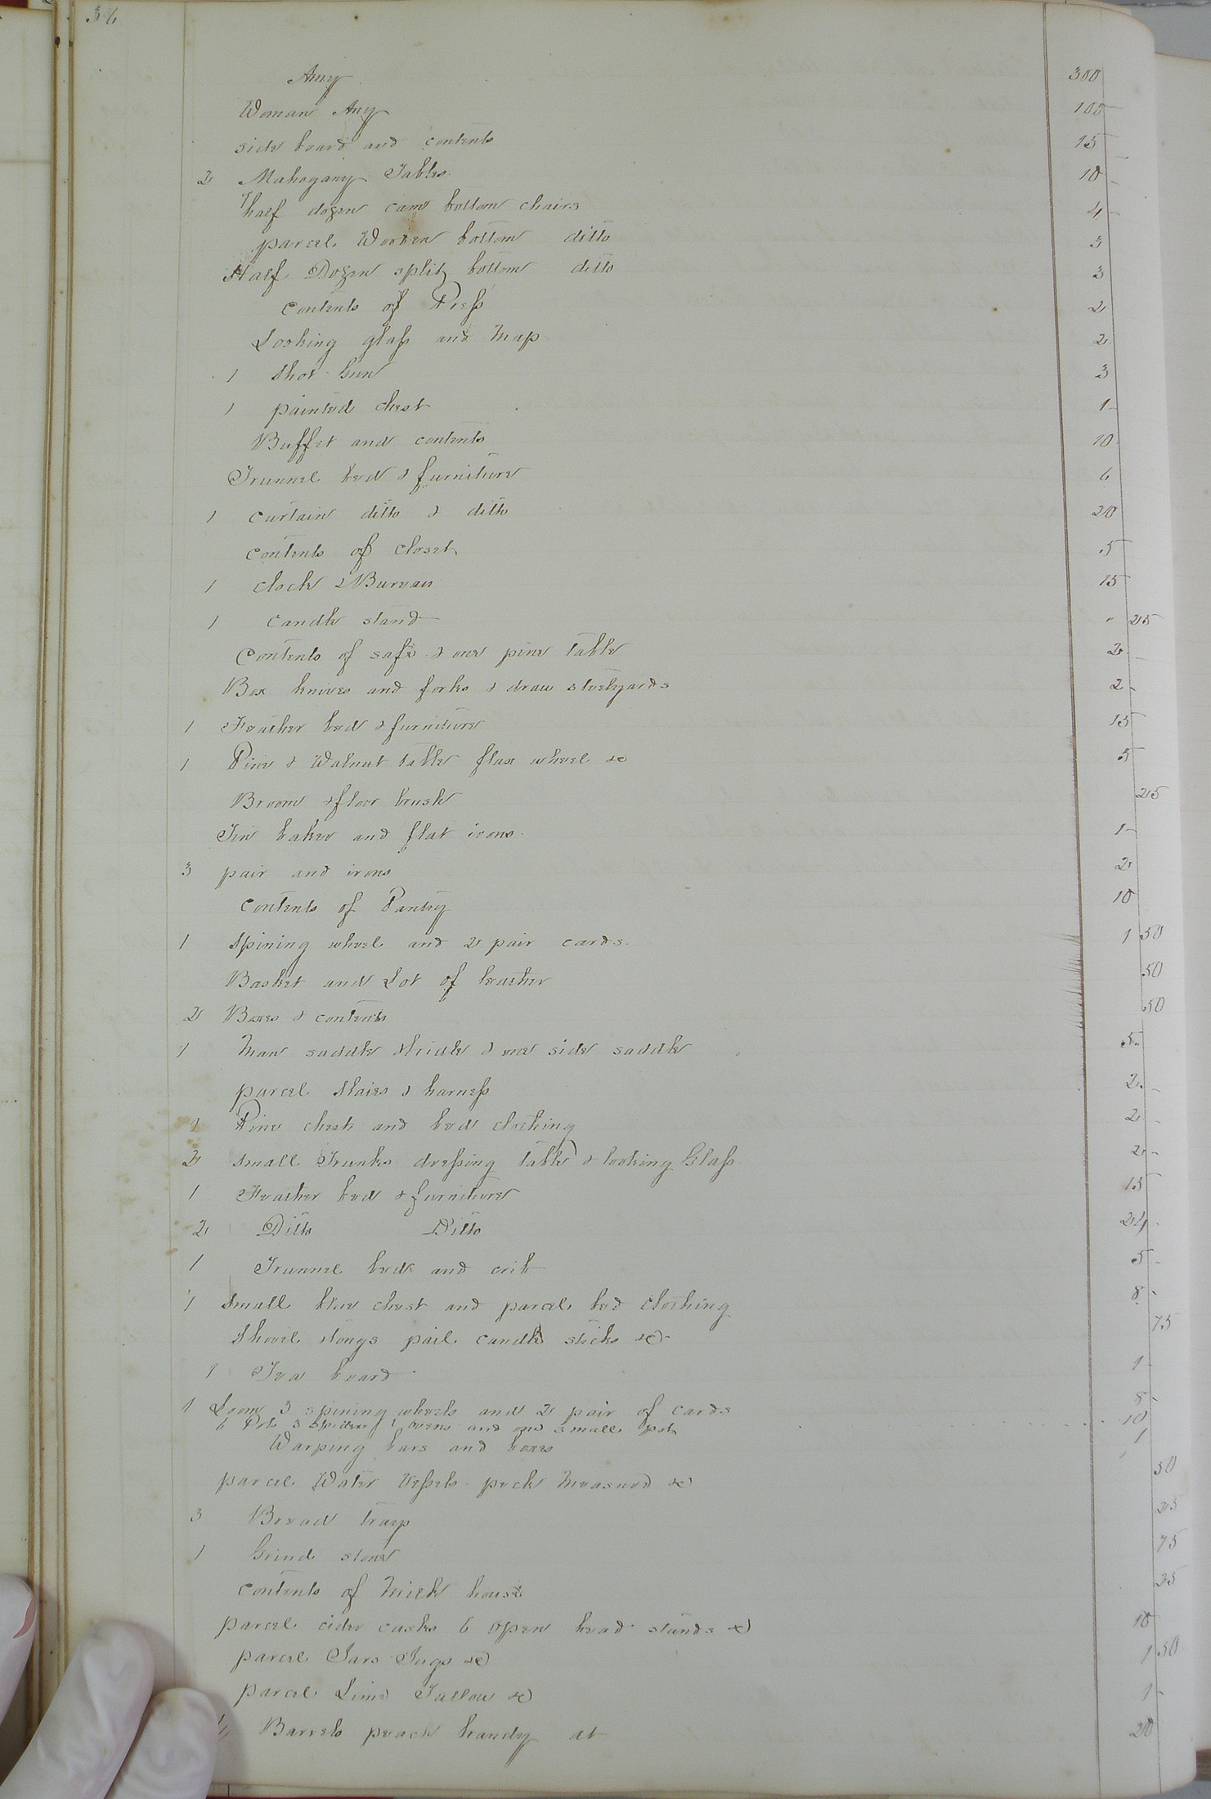 36
Amy 300
Woman Any 100
side board and contents 15
2 Mahogany Tables 10
half dozen cane bottom chairs 4
parcel Wooden bottom ditto 3
Half Dozen split bottom ditto 3
contents of Press 2
Looking glass and Map 2
1 Shot Gun 3
1 painted chest 1
Buffet and contents 10
Trunnel bed & furniture 6
1 curtain ditto & ditto 20
contents of closet 5
1 clock & Bureau 15
1 candle stand " 25
contents of safe & one pine table 2
Box knives and forks & draw steelyards 2
1 Feather bed & furniture 15
1 Pine & Walnut table flax wheel &c 5
Broom & floor brush 25
Tin baker and flat irons 1
3 pair and irons 2
contents of Pantry 10
1 Spining wheel and 2 pair cards 1 50
Basket and Lot of leather 50
2 Boxes & contents 50
1 Man saddle & bridle & one side saddle 5
parcel Slaies & harness 2
1 Pine chest and bed clothing 2
2 small Trunks dressing table & looking Glass 2
1 Feather bed & furniture 15
2 Ditto Ditto 24
1 Trunnel bed and crib 5
1 Small blue chest and parcel bed clothing 8
Shovel & tongs pail candle sticks &c 75
1 Tea board 1
1 Loom 3 spining wheels and 2 pair of cards 8
6 Pots 3 Spiders 1 ovens and one small pot 10
Warping bars and boxes 1
parcel Water Vessels peck measured &c 50
3 Bread trays 25
1 Grind stone 75
contents of Milk house 25
parcel cider casks 6 open head stands &c 10
parcel Jars Jugs &c 1 50
parcel Lime Tallow &c 1
Barrels peach brandy at 20